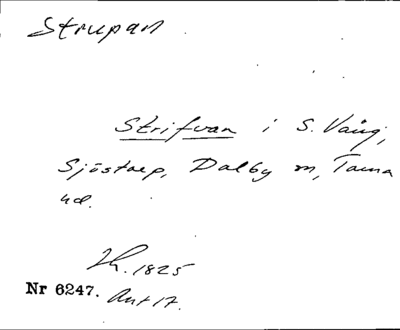 Strupan
Strifvan i S. Vång,
Sjöstorp, Dalby m, Torna
hd.
Lh. 1825
Nr 6247. Ant 17.